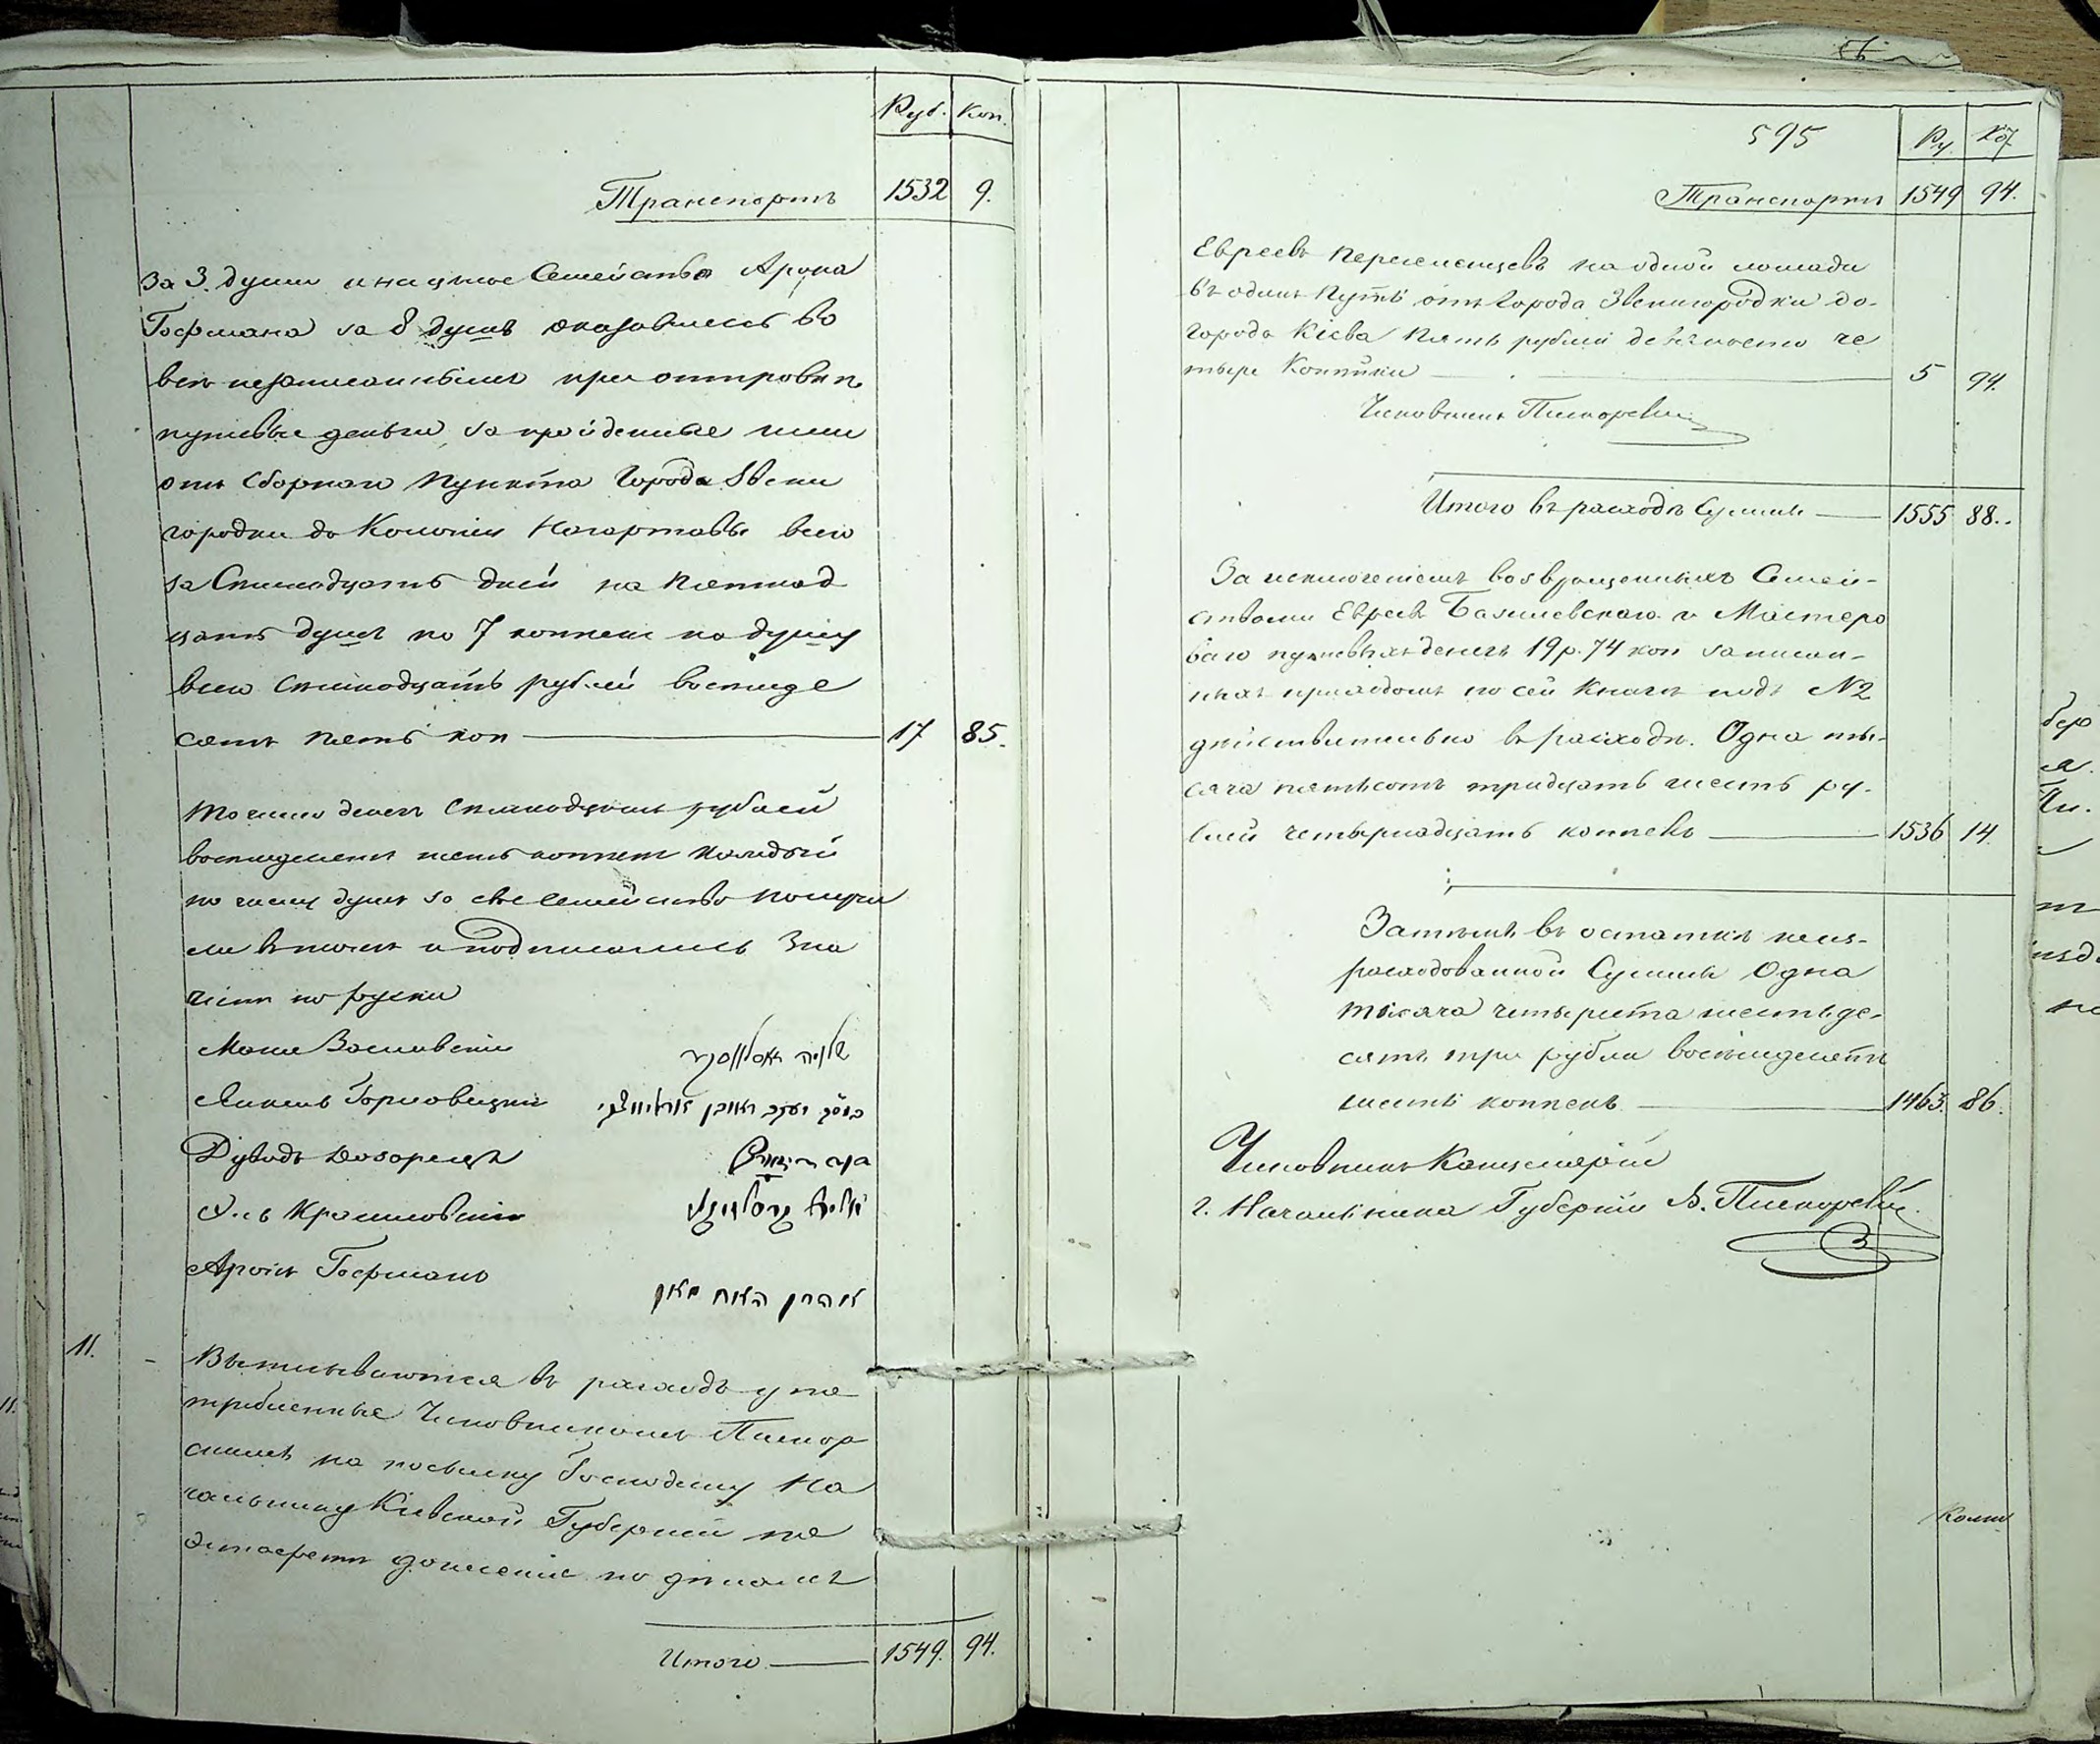 Руб. Коп.
Транспортъ 1532 9.
За 3. души и на целое Семейство Арона
Гофмана за 8 душъ оказавшиесъ во
все незаписанными при отправки
путевые деньги за пройденные ими
отъ Сборнаго Пункта Города Звени
городки до Колоніи Нагартавы всего
за Семнадцать дней на Пятнад
цать душъ по 7 копеекъ на душу
всего Семнадцать рублей восемде
сятъ пять коп 17 85.
денегъ Семнадцать рублей
восемдесятъ пять копеекъ каждый
по числу душъ за свое семейство получи
ли и подписались Зна
чится по руски
Заславскій
Горловецкій
Дувидъ
Аронъ Гофманъ
אהרן האף מאן
11.
Выписываются въ расходъ упо
требленные Чиновникомъ Пискор
скимъ на посылку Господину На
чальнику Кіевской Губерніи по
эстафетѣ донесеніе по дѣламъ
Итого 1549. 94.
595
Ру Коп
Транспортъ 1549 94.
Евреевъ Переселенцевъ на одной лошади
въ одинъ Путь отъ Города Звенигородки до-
города Кіева Пять рублей девяносто че
тыре Копѣйки 5 94.
Чиновникъ Пискорскій
Итого въ расходѣ Суммы 1555 88..
За исключеніемъ возвращенныхъ Семей-
ствами Евреевъ и Мастеро
ваго путевыхъ денегъ 19 р. 74 коп записан-
ныхъ приходомъ по сей Книгѣ подъ N2
дѣйствительно въ расходѣ. Одна ты-
сяча пятьсотъ тридцать шесть ру-
блей четырнадцать копѣекъ 1536 14.
Затѣмъ въ остаткѣ неиз-
расходованной Суммы Одна
тысяча четыреста шестьде-
сятъ три рубли восемдесятъ
шесть копѣекъ 1463. 86.
Чиновникъ Канцеляріи
г. Начальника Губерніи В. Пискорскій